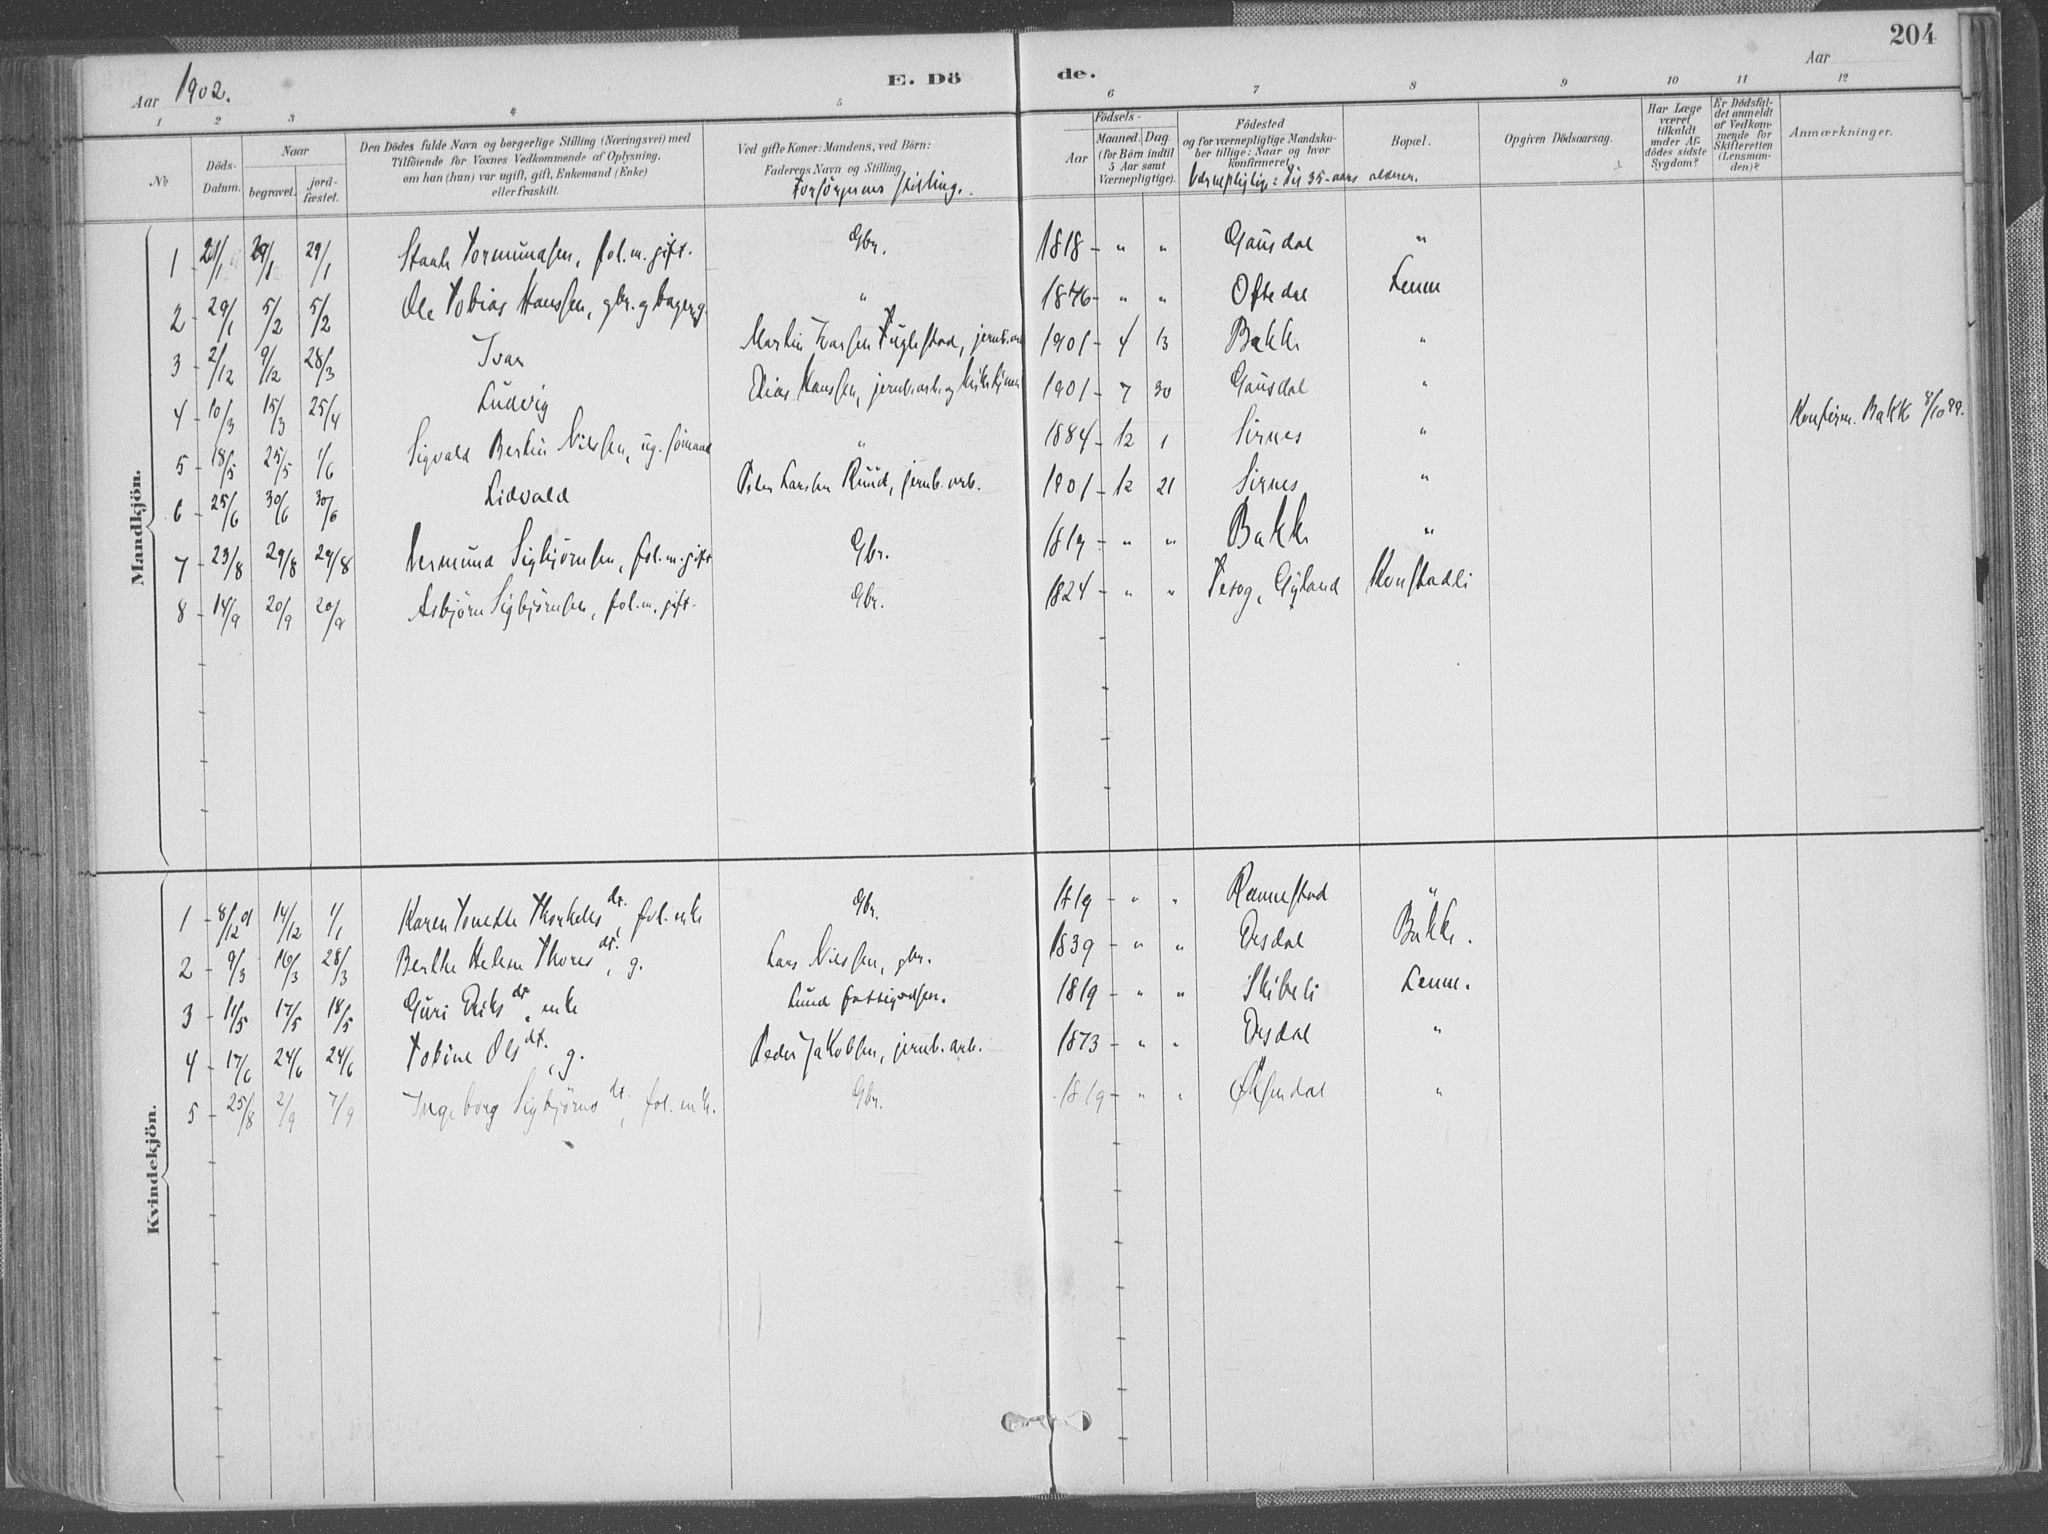 204
Aar 1902. E. Dö de. Aar
1 2 3 4 5 6 7 8 9 10 11 12
№ Döds-Datum. Naar begravet. jord-fæstet. Den Dödes fulde Navn og borgerlige Stilling (Næringsvei) med Tilföiende for Voxnes Vedkommende af Oplysning, om han (hun) var ugift, gift, Enkemand (Enke) eller fraskilt. Ved gifte Koner: Mandens, ved Börn: Faderens Navn og Stilling. Forsörgerens stilling. Födsels- Aar Maaned. Dag. (for Börn indtil 5 Aar samt Værnepligtige). Födested og for værnepligtige Mandska-ber tillige: Naar og hvor konfirmeret. Værnepligtige: til 35-aars alderen. Bopæl. Opgiven Dödsaarsag. Har Læge været tilkaldt under Af-dödes sidste Sygdom? Er Dödsfal-det anmeldt af Vedkom-mende for Skifteretten (Lensman-den)? Anmærkninger.
Mandkjön.
1 21/1 29/1 29/1 Tormundsen, fol.m. gift. Gbr. 1818 " " Gausdal "
2 29/1 5/2 5/2 Ole Tobias Hanssen, gbr. og bager, g. " 1876 " " Oftedal Lenne
3 2/12 9/12 28/3 Ivar Martin Ivarsen Fuglestad, jernb.arb. 1901 4 13 Bakke "
4 10/3 15/3 25/4 Ludvig Elias Hanssen, jernb.arb. og 1901 7 30 Gausdal "
5 18/5 25/5 1/6 Sigvald Bertin Nilssen, ug. sömand " 1884 12 1 Sirnes " Konfirm. Bakke 8/10 99.
6 25/6 30/6 30/6 Lidvald Peder Larssen Ruud, jernb.arb. 1901 12 21 Sirnes "
7 23/8 29/8 29/8 Vermund Sigbjörnsen, fol.m. gift Gbr. 1819 " " Bakke "
8 14/9 20/9 20/9 Asbjörn Sigbjörnsen, fol.m. gift. Gbr. 1824 " " Gyland
Kvindekjön.
1 8/12 01 14/12 1/1 Karen Tonette Thorkelsdr., fol. enke Gbr. 1819 " " Rannestad "
2 9/3 16/3 28/3 Berthe Helene Thoresdr., g. Lars Nilssen, gbr. 1839 " " Orsdal Bakke.
3 11/5 17/5 18/5 Guri Eriksdr., enke Lund fattigvæsen. 1819 " " Skibeli Lenne.
4 17/6 24/6 24/6 Tobine Olsdt., g. Peder Jakobsen, jernb.arb. 1873 " " Orsdal "
5 25/8 2/9 7/9 Ingeborg Sigbjörnsdt., fol. enke. Gbr. 1819 " " Öksendal "